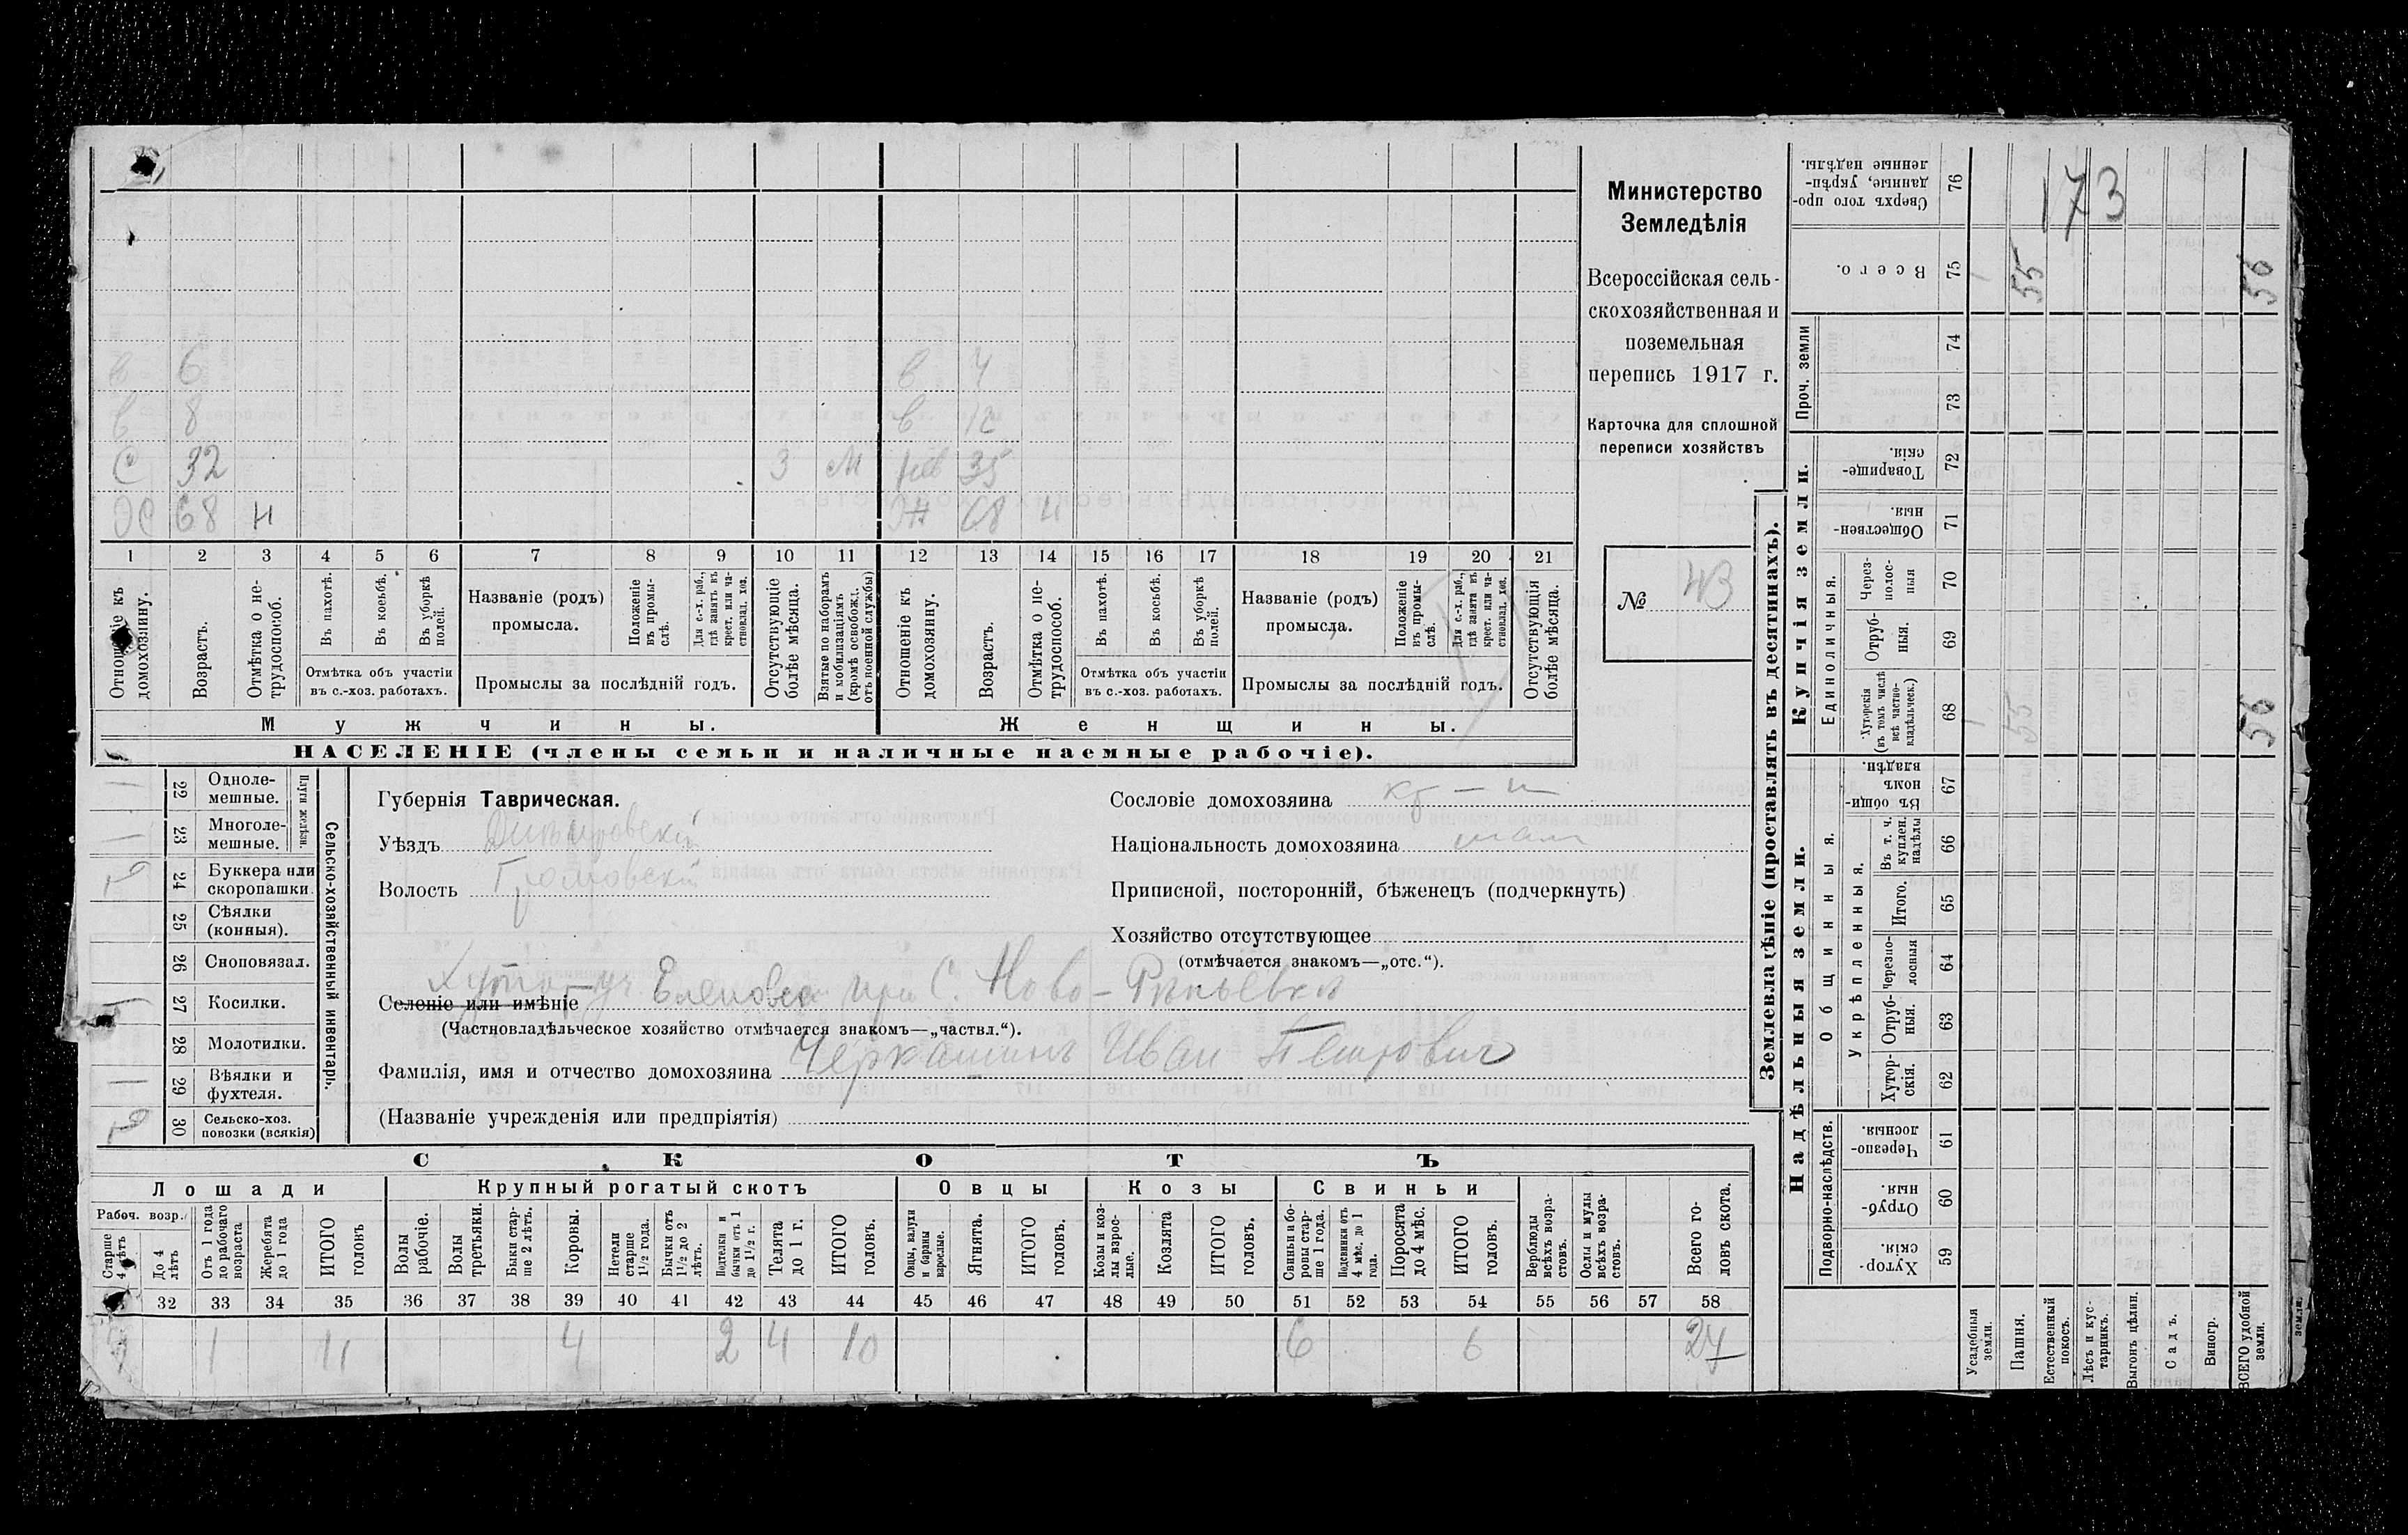 173
Министерство
Земледѣлія
Всероссійская сель-
скохозяйственная и
поземельная
перепись 1917 г.
Карточка для сплошной
переписи хозяйствъ
№ 43
в 6 в 4
в 8 в 12
С 32 3 м 35
68 н 68 н
1 2 3 4 5 6 7 8 9 10 11 12 13 14 15 16 17 18 19 20 21
Отношеніе къ домохозяину.
Возрастъ.
Отмѣтка о не-трудоспособ.
Въ пахотѣ.
Въ косьбѣ.
Въ уборкѣ полей.
Отмѣтка объ участіи
въ с.-хоз. работахъ.
Названіе (родъ)
промысла.
Положеніе въ промы-слѣ.
Для с.-х. раб., гдѣ занятъ въ крест. или ча-стновлад. хоз.
Промыслы за послѣдній годъ.
Отсутствующіе болѣе мѣсяца.
Взятые по наборамъ и мобилизаціямъ (кромѣ освобож. отъ военной службы)
Отношеніе къ домохозяину.
Возрастъ.
Отмѣтка о не-трудоспособ.
Въ пахотѣ.
Въ косьбѣ.
Въ уборкѣ полей.
Отмѣтка объ участіи
въ с.-хоз. работахъ.
Названіе (родъ)
промысла.
Положеніе въ промы-слѣ.
Для с.-х. раб., гдѣ занята въ крест. или ча-стновлад. хоз.
Промыслы за послѣдній годъ.
Отсутствующія болѣе мѣсяца.
Мужчины. Женщины.
НАСЕЛЕНІЕ (члены семьи и наличные наемные рабочіе).
Сельско-хозяйственный инвентарь.
Плуги желѣзн.
1 22 Одноле-мешные.
1 23 Многоле-мешные.
2 24 Буккера или скоропашки.
25 Сѣялки (конныя).
26 Сноповязал.
1 27 Косилки.
28 Молотилки.
1 29 Вѣялки и фухтеля.
2 30 Сельско-хоз. повозки (всякія)
Губернія Таврическая.
Уѣздъ Днѣпровскій
Волость Громовскій
Сословіе домохозяина кр-н
Національность домохозяина
Приписной, посторонній, бѣженецъ (подчеркнуть)
Хозяйство отсутствующее
(отмѣчается знакомъ—„отс.“).
Селеніе или имѣніе Хуторъ Еленовка при С. Ново-Рѣпьевка
(Частновладѣльческое хозяйство отмѣчается знакомъ—„частвл.“).
Фамилія, имя и отчество домохозяина Черкашинъ Иван Петрович
(Названіе учрежденія или предпріятія)
СКОТЪ
Лошади Крупный рогатый скотъ Овцы Козы Свиньи
Рабоч. возр.
Старше 4 лѣтъ
До 4 лѣтъ
Отъ 1 года до рабочаго возраста
Жеребята до 1 года
ИТОГО головъ
Волы рабочіе.
Волы третьяки.
Быки стар-ше 2 лѣтъ.
Коровы.
Нетели старше 1½ года.
Бычки отъ 1½ до 2 лѣтъ.
Подтелки и бычки отъ 1 до 1½ г.
Телята до 1 г.
ИТОГО головъ.
Овцы, валухи и бараны взрослые.
Ягнята.
ИТОГО головъ.
Козы и коз-лы взрос-лые.
Козлята
ИТОГО головъ.
Свиньи и бо-ровы стар-ше 1 года.
Подсвинки отъ 4 мѣс. до 1 года.
Поросята до 4 мѣс.
ИТОГО головъ.
Верблюды всѣхъ возра-стовъ.
Ослы и мулы всѣхъ возра-стовъ.
Всего го-ловъ скота.
32 33 34 35 36 37 38 39 40 41 42 43 44 45 46 47 48 49 50 51 52 53 54 55 56 57 58
1 11 4 2 4 10 6 6 27
Землевладѣніе (проставлять въ десятинахъ).
Надѣльныя земли. Купчія земли. Проч. земли
Подворно-наслѣдств. Общинныя. Единоличныя.
Укрѣпленныя.
Хутор-скія. 59
Отруб-ныя. 60
Черезпо-лосныя 61
Хутор-скія. 62
Отруб-ныя. 63
Черезпо-лосныя 64
Итого. 65
Въ т. ч. куплен. надѣлы 66
Въ общи-номъ владѣн. 67
Хуторскія (въ томъ числѣ всѣ частно-владѣльческ.) 68
Отруб-ныя. 69
Через-полос-ныя 70
Обществен-ныя. 71
Товарище-скія. 72
73
74
Всего. 75
Сверхъ того про-данные, укрѣп-ленные надѣлы. 76
Усадебныя земли. 1 1
Пашня. 55 55
Естественный покосъ.
Лѣсъ и кус-тарникъ.
Выгонъ цѣлин.
Садъ.
Виногр.
ВСЕГО удобной земли. 56 56
земли.